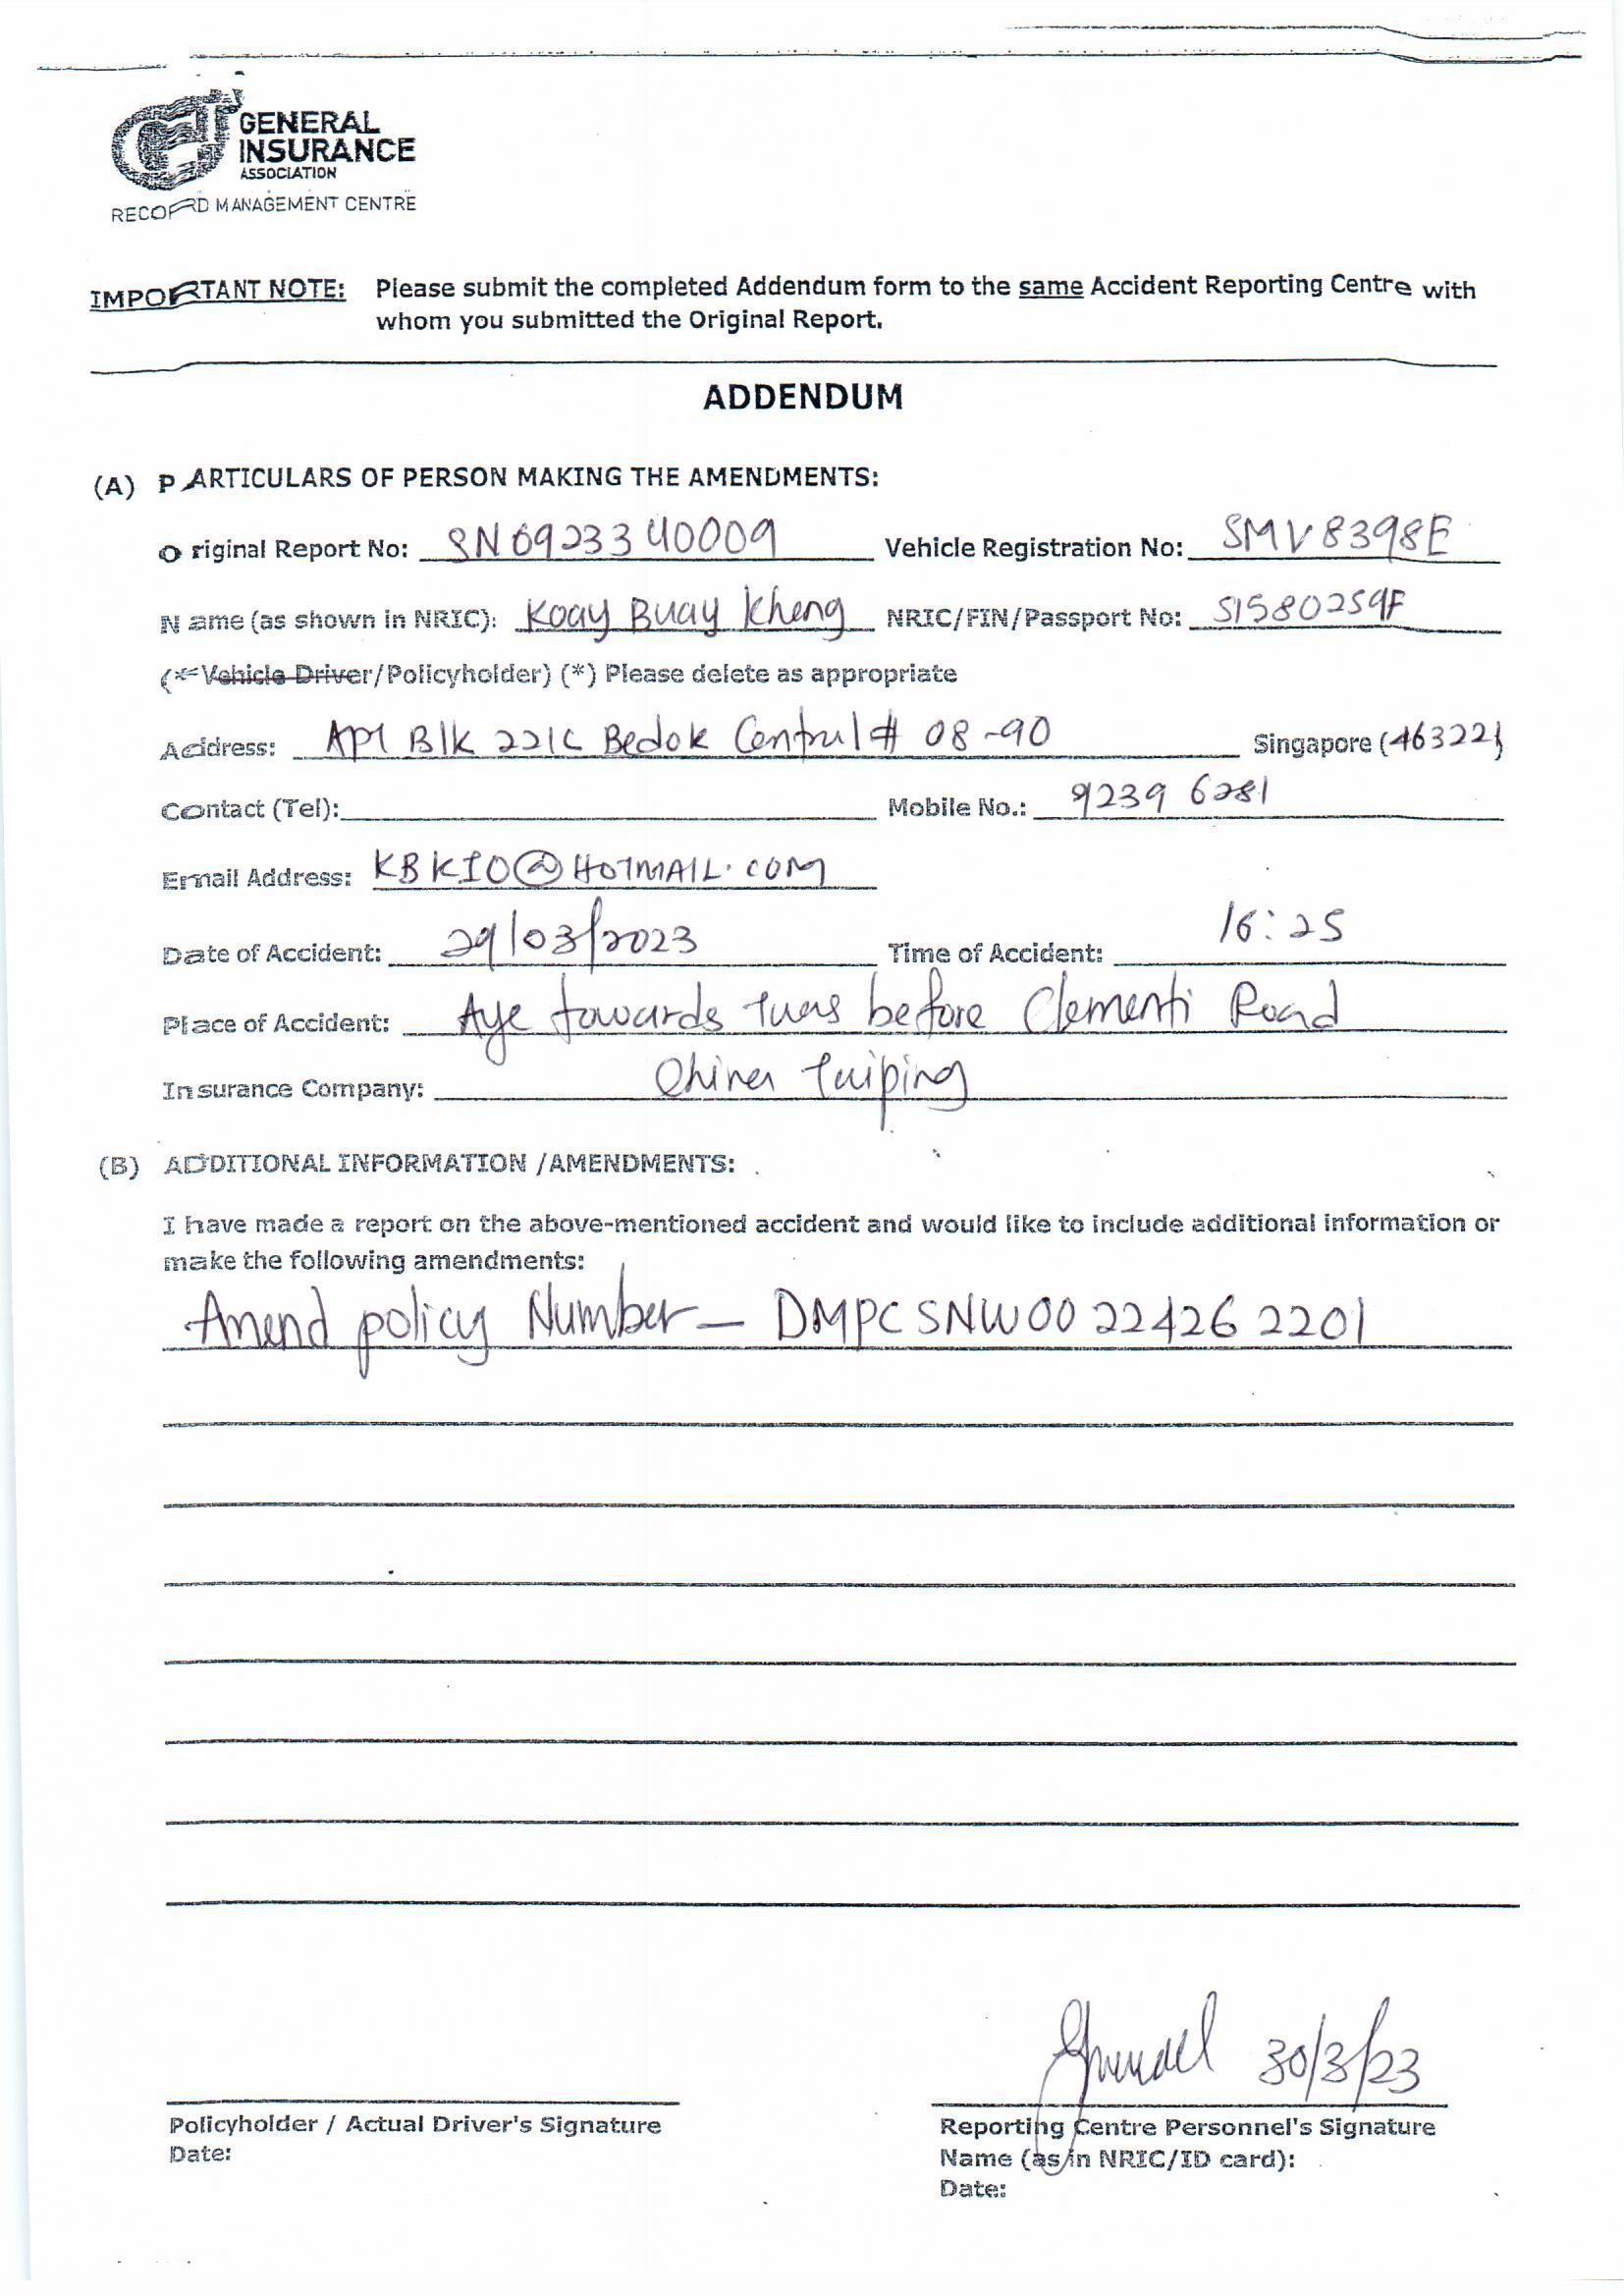 GENERAL
INSURANCE
ASSOCIATION
RECORD MANAGEMENT CENTRE
IMPORTANT NOTE: Please submit the completed Addendum form to the same Accident Reporting Centre with
whom you submitted the Original Report.
ADDENDUM
(A) PARTICULARS OF PERSON MAKING THE AMENDMENTS:
Original Report No: SN0923340009 Vehicle Registration No: SMV8398E
Name (as shown in NRIC): Koay Buay Kheng NRIC/FIN/Passport No: S1580259F
(*Vehicle Driver/Policyholder) (*) Please delete as appropriate
Address: Apt Blk 221C Bedok Central # 08-90 Singapore (463221)
Contact (Tel): Mobile No.: 9239 6281
Email Address: KBK10@HOTMAIL.COM
Date of Accident: 29/03/2023 Time of Accident: 16:25
Place of Accident: Aye towards Tuas before Clementi Road
Insurance Company: China Taiping
(B) ADDITIONAL INFORMATION /AMENDMENTS:
I have made a report on the above-mentioned accident and would like to include additional information or
make the following amendments:
Amend policy Number - DMPCSNW00224262201
30/3/23
Policyholder / Actual Driver's Signature Reporting Centre Personnel's Signature
Date: Name (as in NRIC/ID card):
Date: